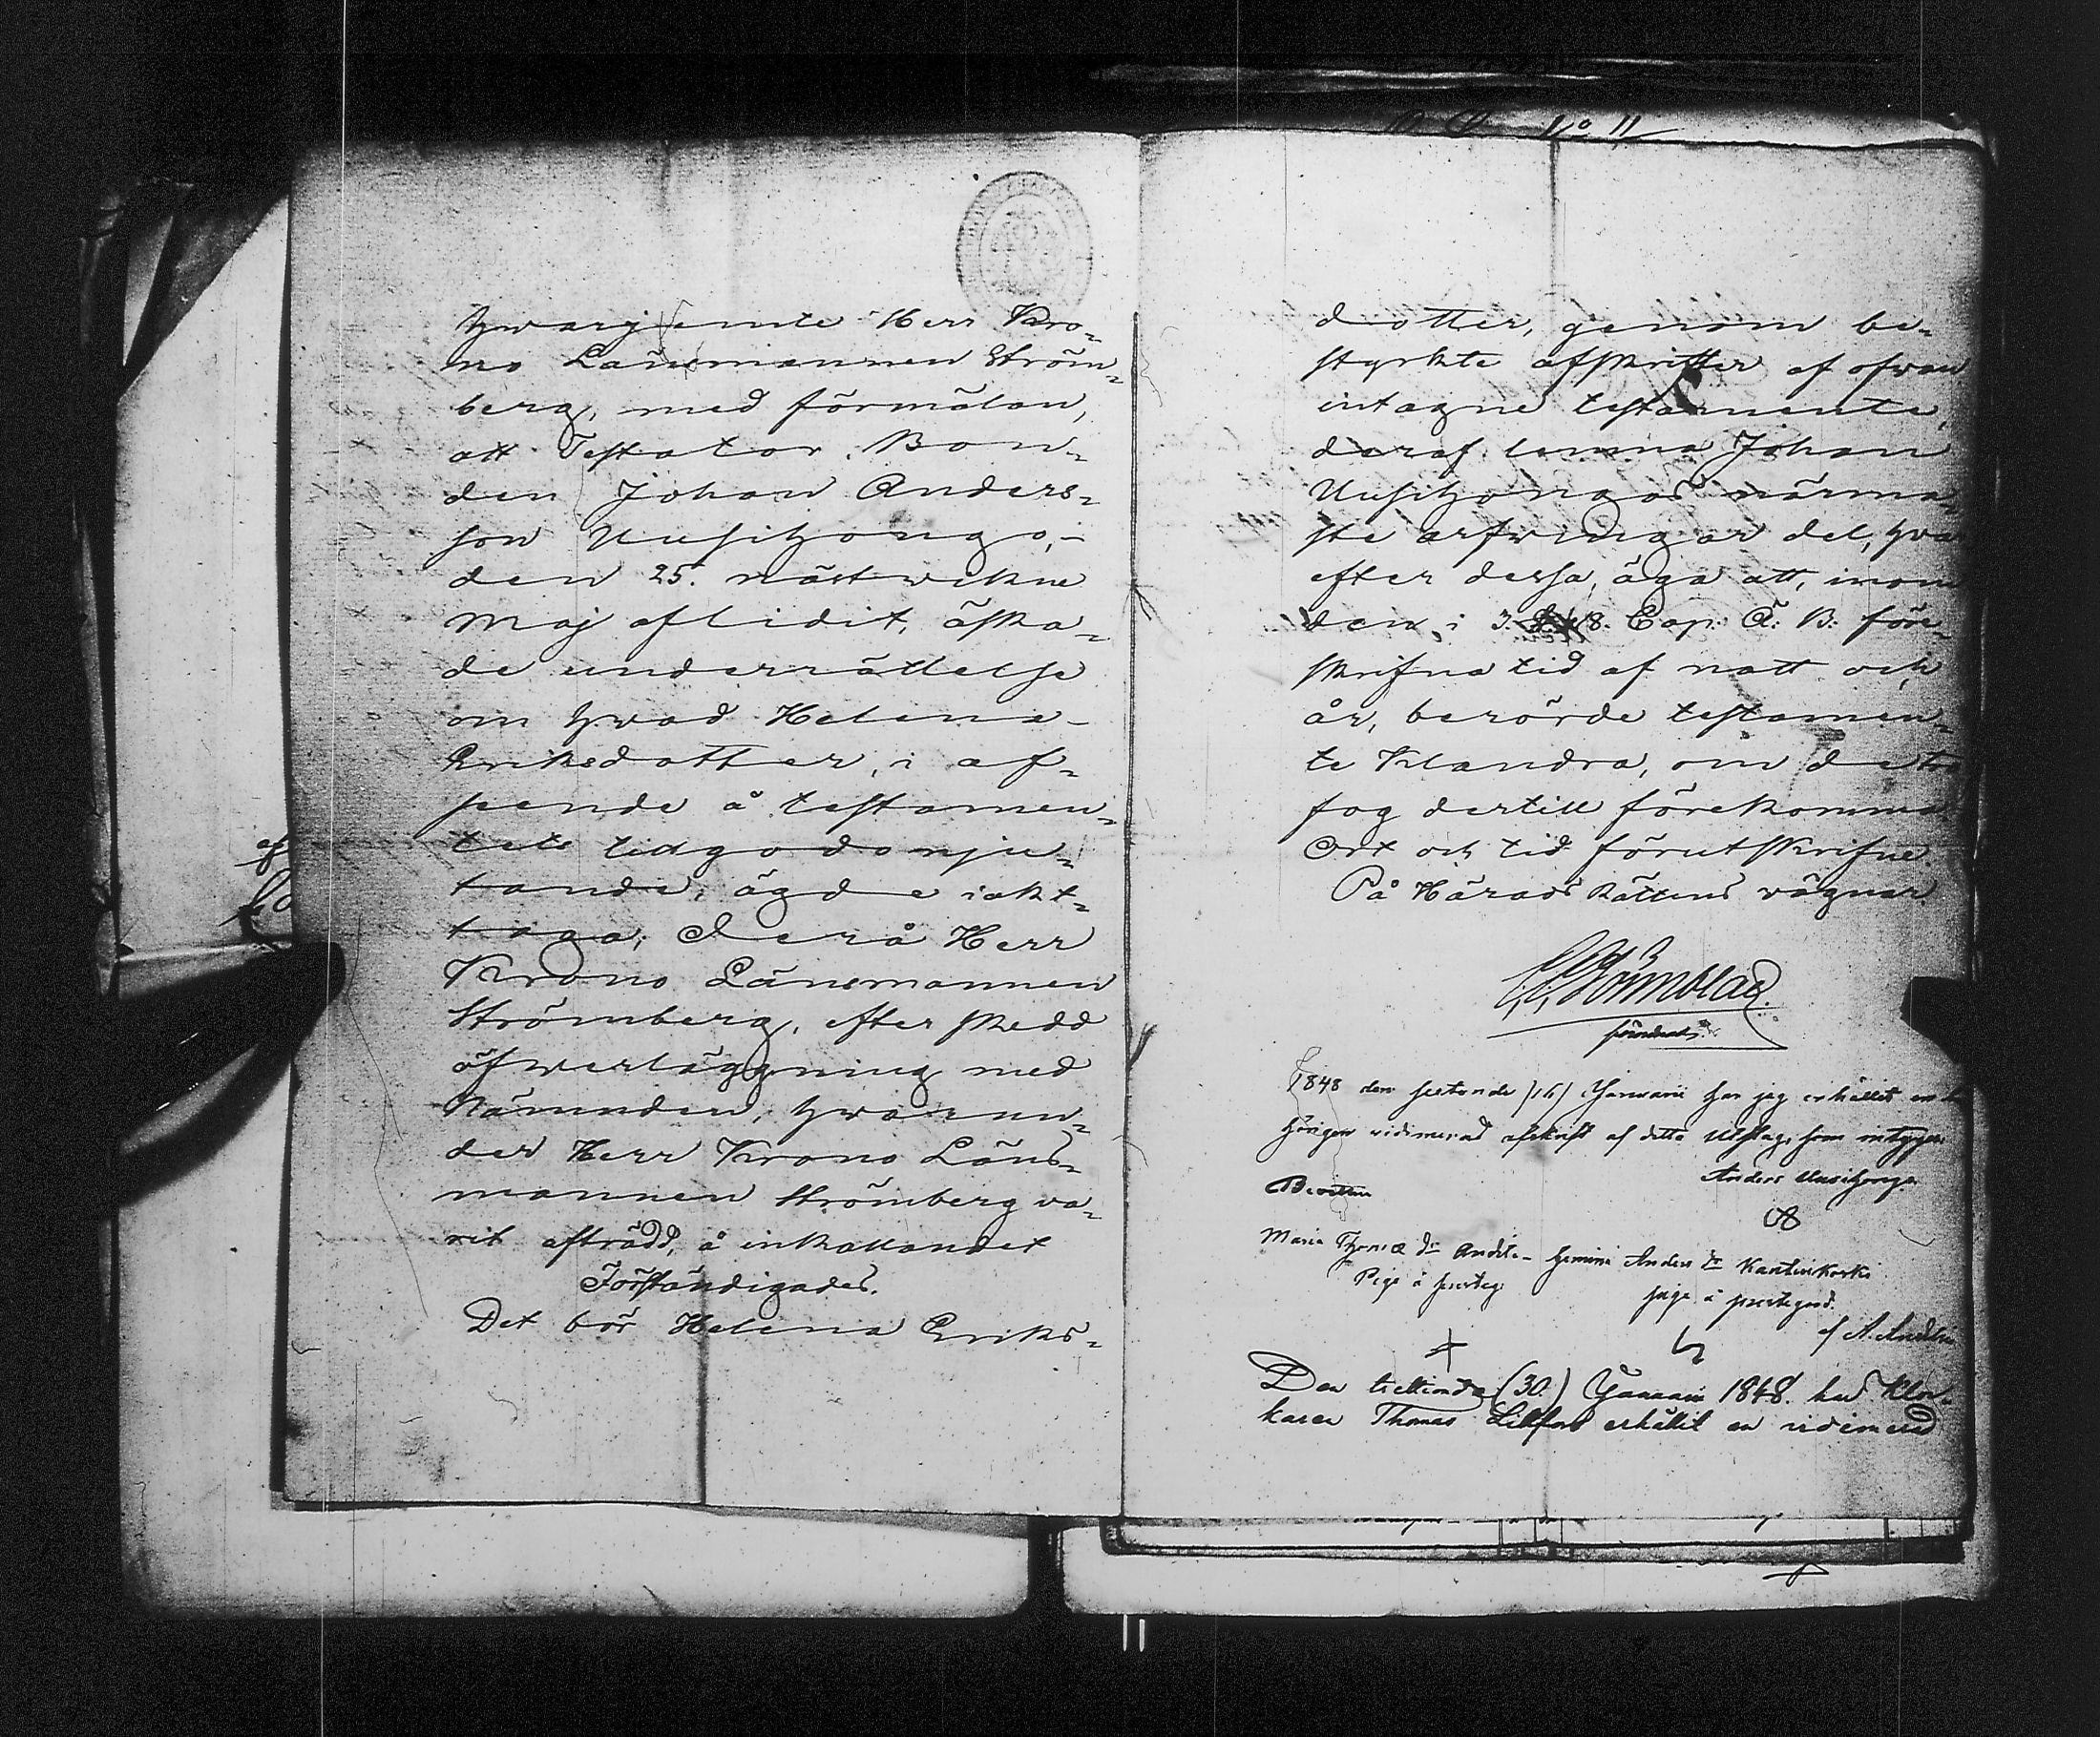 hwarjemte Herr Kro-
no Länsmannen Ström-
berg, med förmälan,
att Testator Bon-
den Johan Anders-
son Uusihongo,-
den 25. nästwikne
Maj aflidit, äska-
de underrättelse
om hwad Helena
Eriksdotter, i af-
seende å testamen-
tets tillgodonju-
tande, ägde iakt-
taga; Derå Herr
Krono Länsmannen
Strömberg, efter skedd
öfwerläggning med
Nämnden, hwarun-
der Herr Krono Läns-
mannen Strömberg va-
rit afträdd, å inkallandet
Förständigades.
Det bör Helena Eriks-
dotter, genom be-
styrkte afskrifter af ofwan
intagne testamente,
deraf lemna Johan
Uusihongos närma-
ste arfwingar del, hwar
efter dessa, äga att, inom
den i 3. § 18. Cap. Ä: B: före-
skrifna tid af natt och
år, berörde testamen-
te klandra, om de
fog dertill förekomma.
Ort och tid förutskrifne
På Härads Rättens vägnar.
förordnad.
1848 den sextonde /16/ Januarii har jag erhållit en
hörigen vidimerad afskrift af detta Utslag, som intygar
Anders Uusihongo
Bevittna
Maria Thomæ dr Andila
Anders dr Kantinkoski
piga å prestegård.
af A. Andelin
Den trettionde (30.) Januarii 1848. had Kloc-
karen Thomas Lilfors erhållit en vidimerad